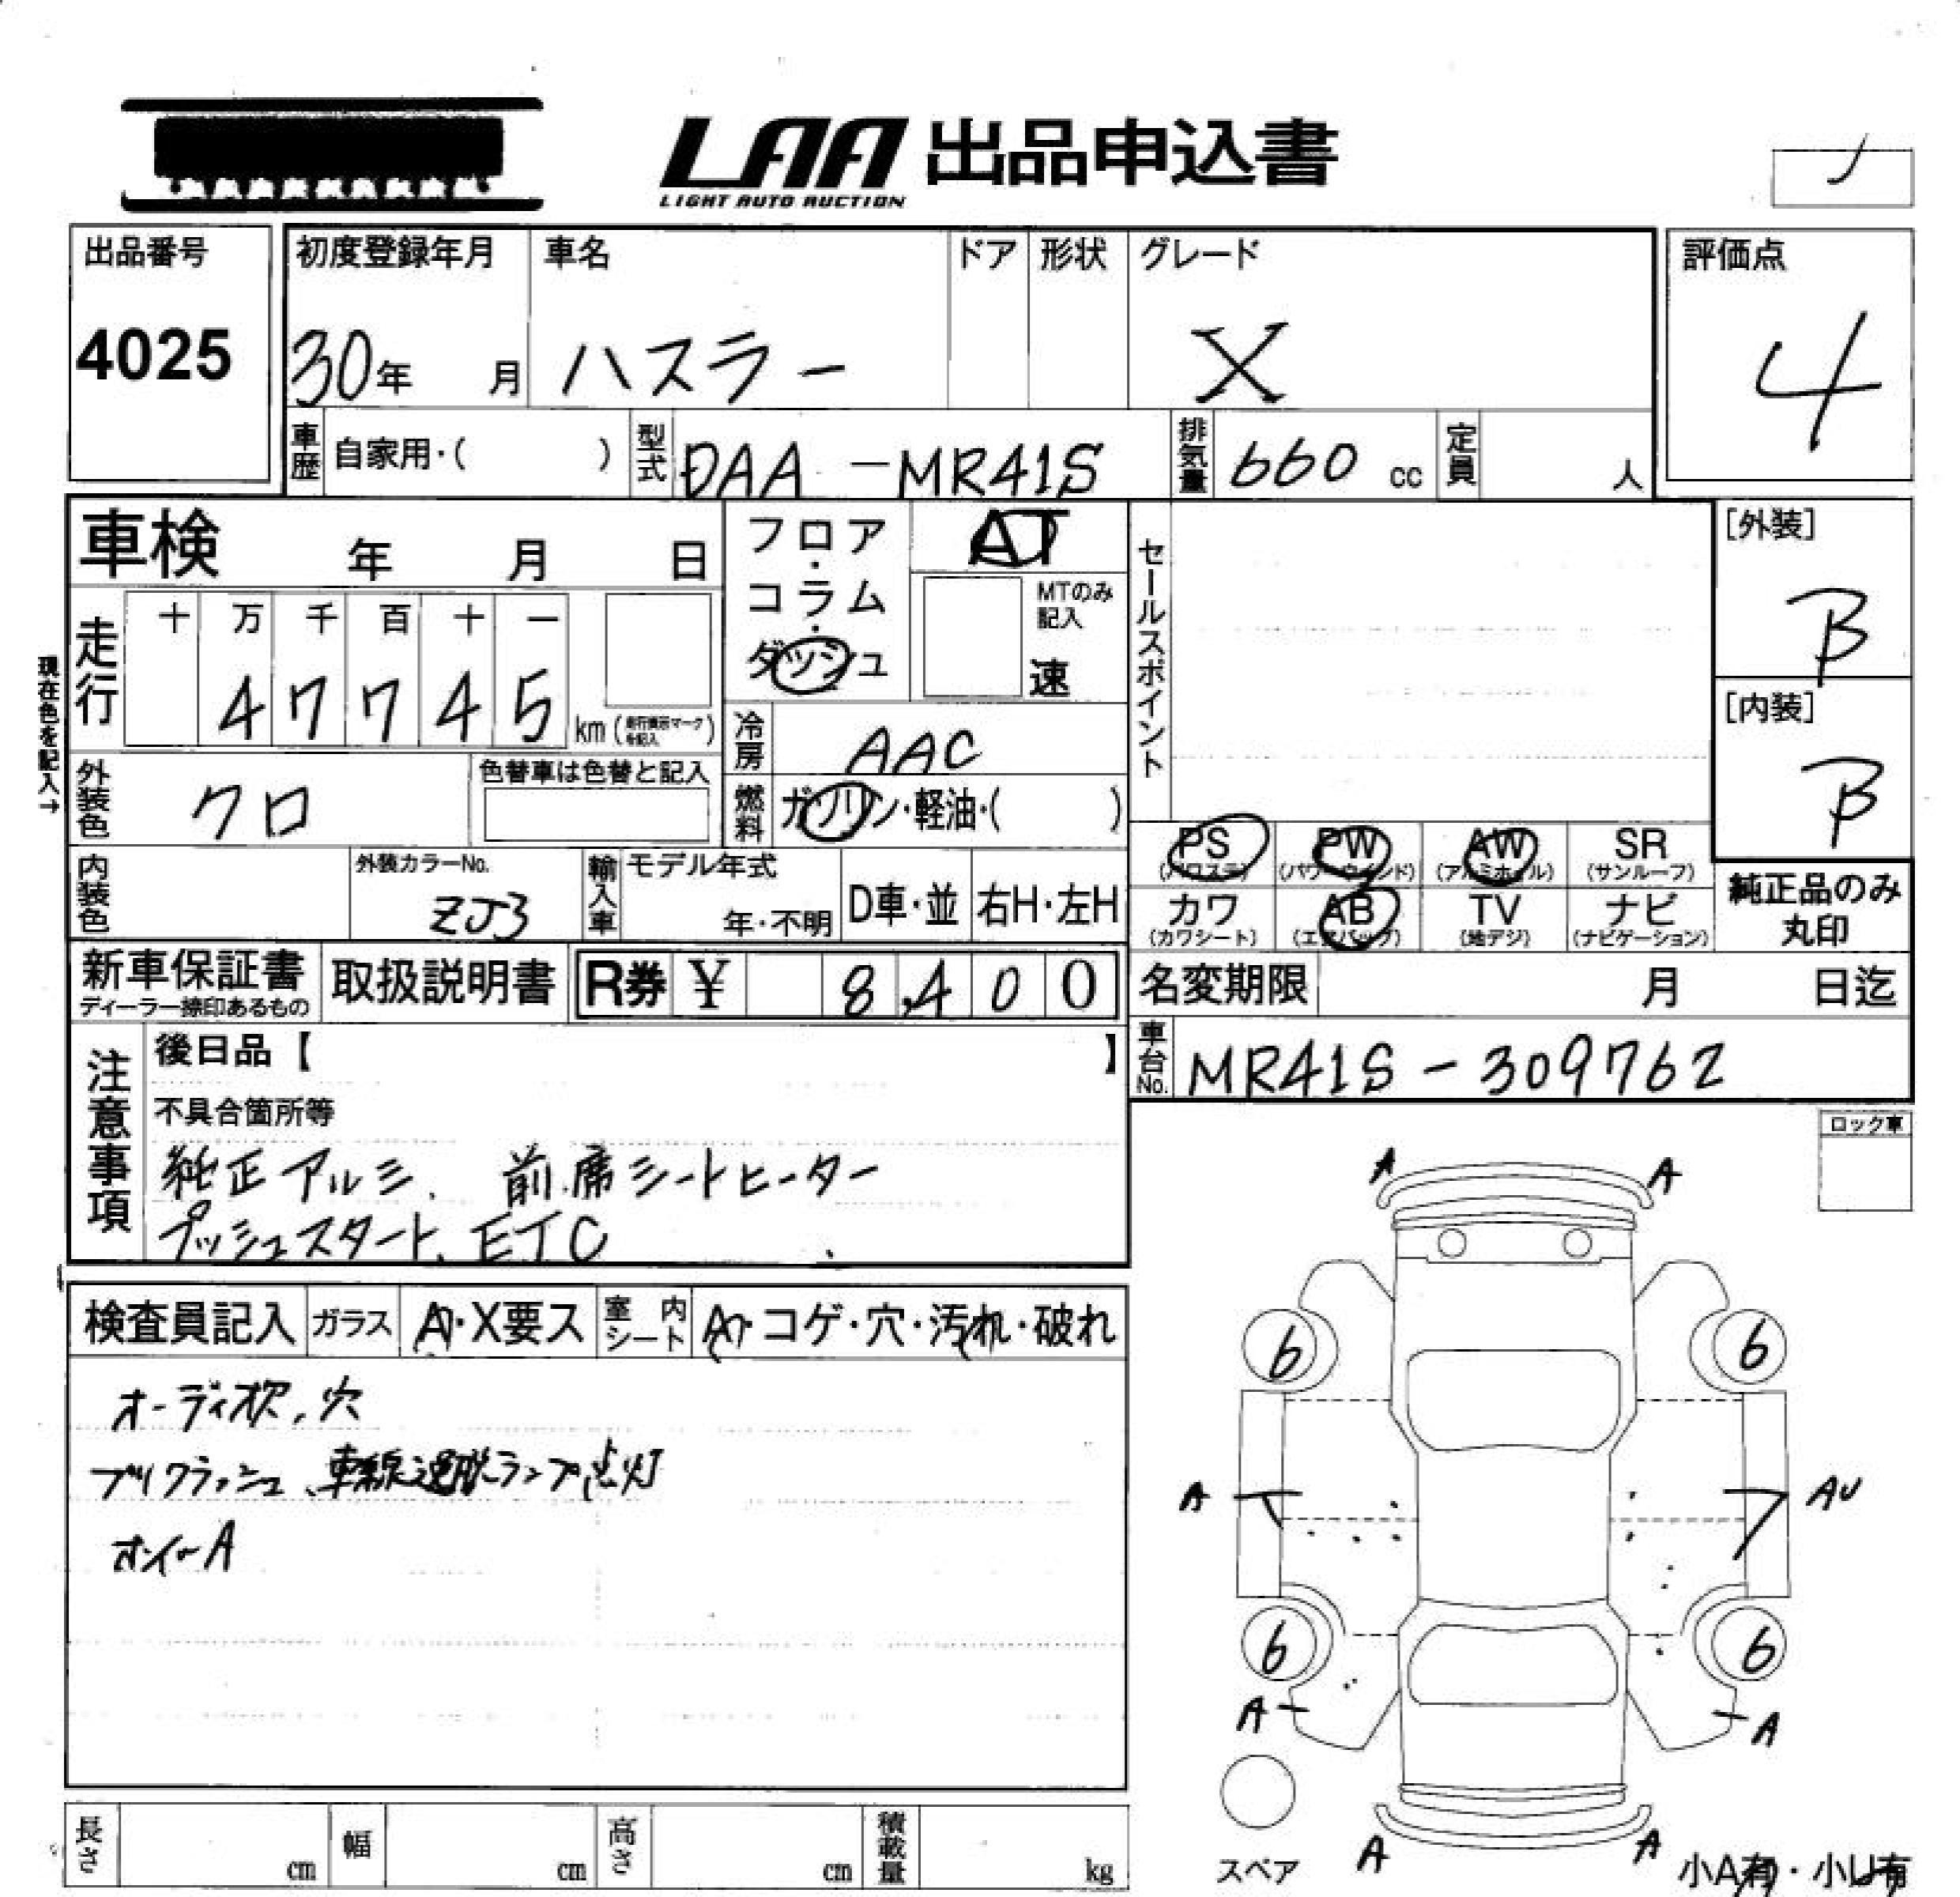 LAA 出品申込書
LIGHT AUTO AUCTION
出品番号
4025
初度登録年月
30年 月
車名
ハスラー
ドア
形状
グレード
X
評価点
4
車歴 自家用・( )
型式 DAA-MR41S
排気量 660 cc
定員 人
車検 年 月 日
フロア・コラム・ダッシュ
AT
MTのみ記入
速
セールスポイント
[外装]
B
[内装]
B
現在色を記入→
走行
十 万 千 百 十 一
4 7 7 4 5 km
冷房 AAC
外装色 クロ
色替車は色替と記入
燃料 ガソリン・軽油・( )
PS PW AW SR
(パワステ) (パワーウインド) (アルミホイル) (サンルーフ)
カワ AB TV ナビ
(カワシート) (エアバッグ) (地デジ) (ナビゲーション)
純正品のみ
丸印
内装色
外装カラーNo.
ZJ3
輸入車
モデル年式
年・不明
D車・並
右H・左H
新車保証書
ディーラー捺印あるもの
取扱説明書
R券 ¥ 8,400
名変期限 月 日迄
車台No. MR41S-309762
注意事項
後日品【 】
不具合箇所等
純正アルミ、前席シートヒーター
プッシュスタート、ETC
ロック車
検査員記入
ガラス A・X要ス
室内シート A・コゲ・穴・汚れ・破れ
オーディオ欠、穴
車線逸脱ランプ点灯
ホイールA
A A
6 6
A AU
6 6
A A
A A
スペア
小A有・小U有
長さ cm
幅 cm
高さ cm
積載量 kg